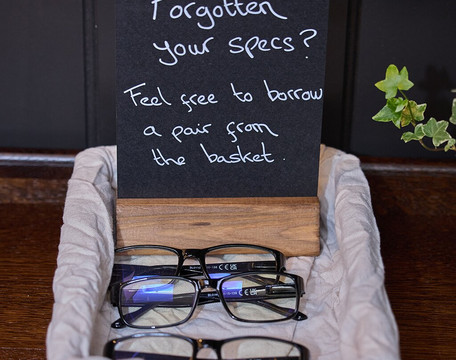 Forgotten
your specs?
Feel free to borrow
a pair from
the basket.